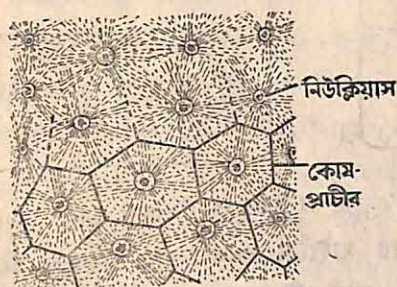 নিউক্লিয়াস
কোষ-
প্রাচীর